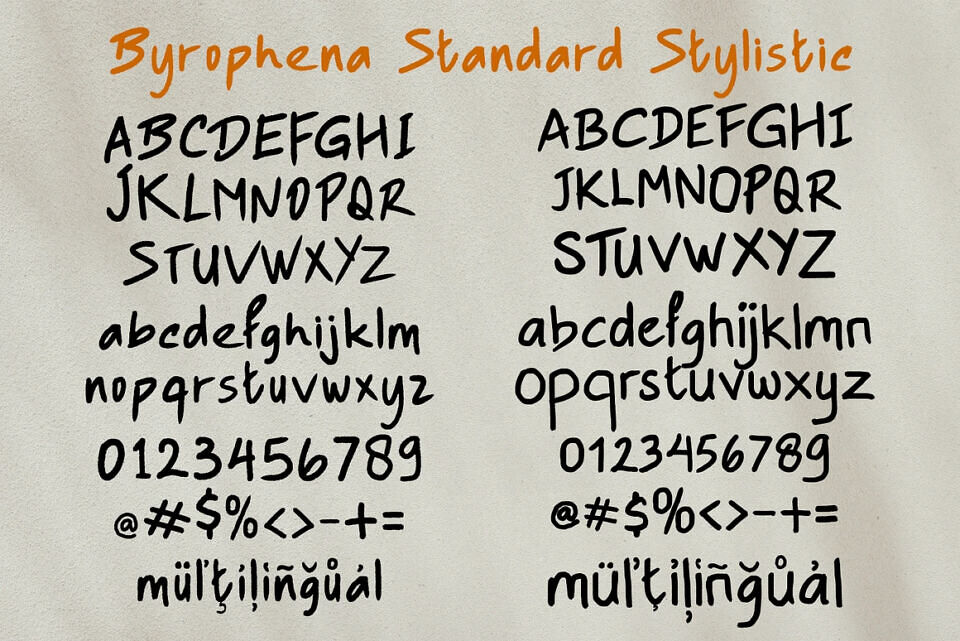 Byrophena Standard Stylistic
ABCDEFGHI
JKLMNOPQR
STUVWXYZ
abcdefghijklm
nopqrstuvwxyz
0123456789
@#$%<>-+=
müľţíļiñğůál
ABCDEFGHI
JKLMNOPQR
STUVWXYZ
abcdefghijklmn
opqrstuvwxyz
0123456789
@#$%<>-+=
müľţíļiñğůál